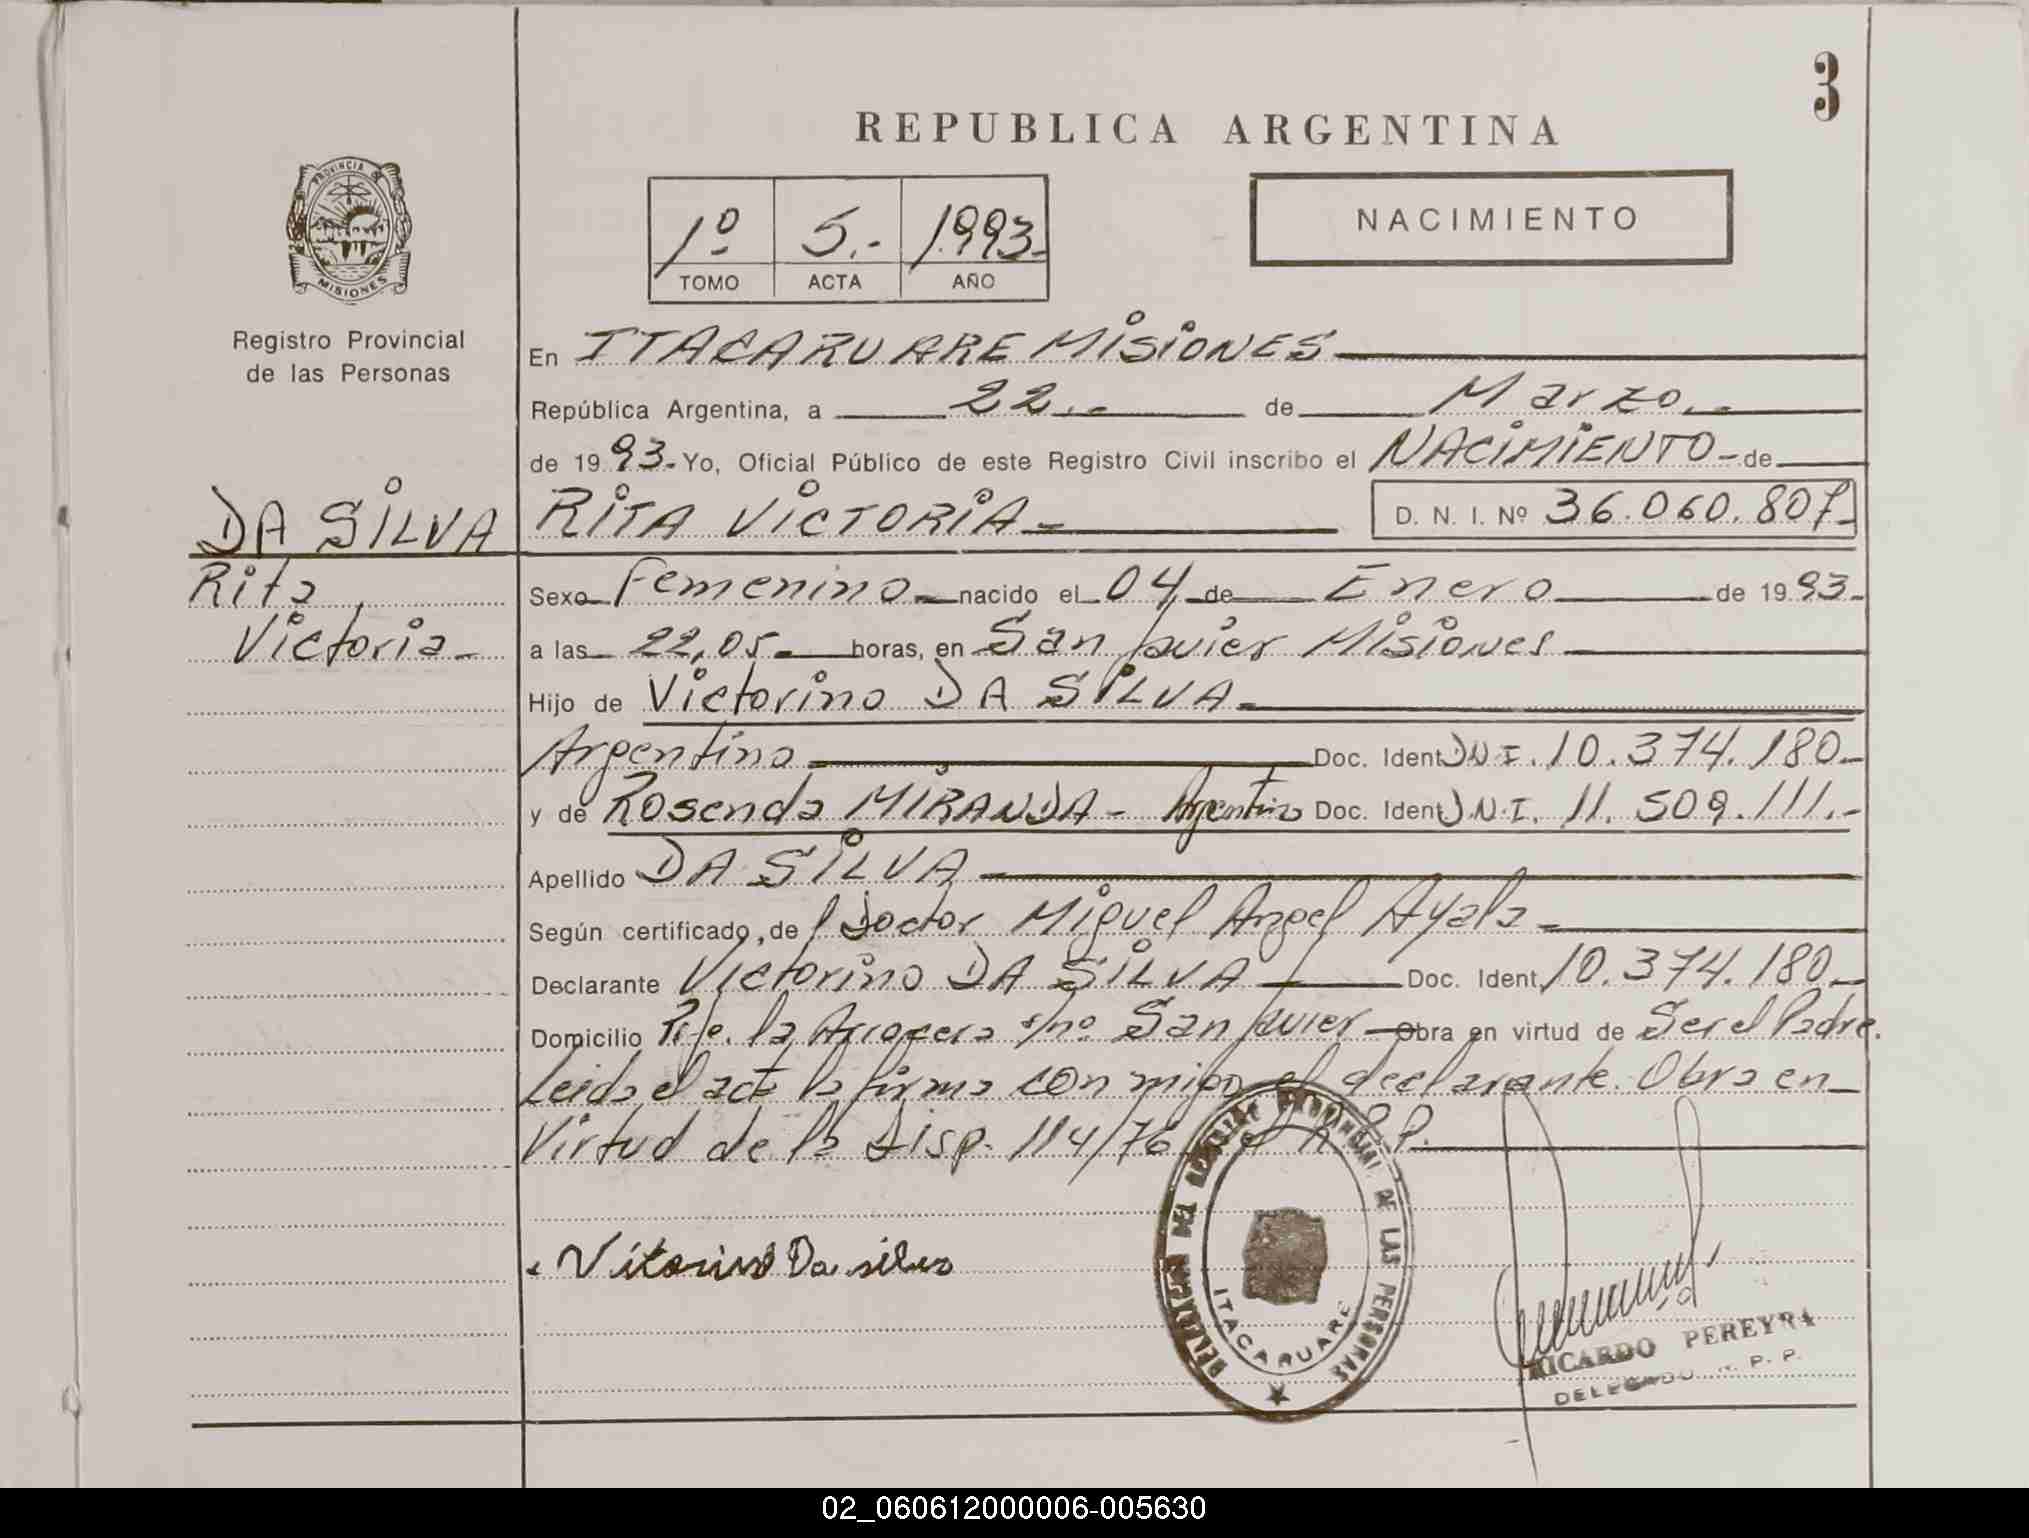 3
REPUBLICA ARGENTINA
PROVINCIA DE
MISIONES
1º 5.- 1993-
TOMO ACTA AÑO
NACIMIENTO
Registro Provincial
de las Personas
En ITACARUARE MISIONES
República Argentina, a 22.- de Marzo.-
de 1993.- Yo, Oficial Público de este Registro Civil inscribo el NACIMIENTO - de
DA SILVA
Rita
Victoria -
RITA VICTORIA - D. N. I. Nº 36.060.807-
Sexo Femenino - nacido el 04 de Enero de 1993-
a las 22,05- horas, en San Javier Misiones
Hijo de Victorino DA SILVA -
Argentino Doc. Ident D.N.I. 10.374.180-
y de Rosenda MIRANDA - Argentina Doc. Ident D.N.I. 11.509.111.-
Apellido DA SILVA
Según certificado, de l Doctor Miguel Angel Ayala -
Declarante Victorino DA SILVA - Doc. Ident 10.374.180-
Domicilio la s/nº San Javier - Obra en virtud de Ser el Padre.
Leida el acta la firma con migo el declarante. Obra en
Virtud de la Disp. 114/76 R.P.P.
Vitorino Da silva
DELEGACION DEL REGISTRO PROVINCIAL DE LAS PERSONAS
ITACARUARE
RICARDO PEREYRA
DELEGADO R. P. P.
02_060612000006-005630